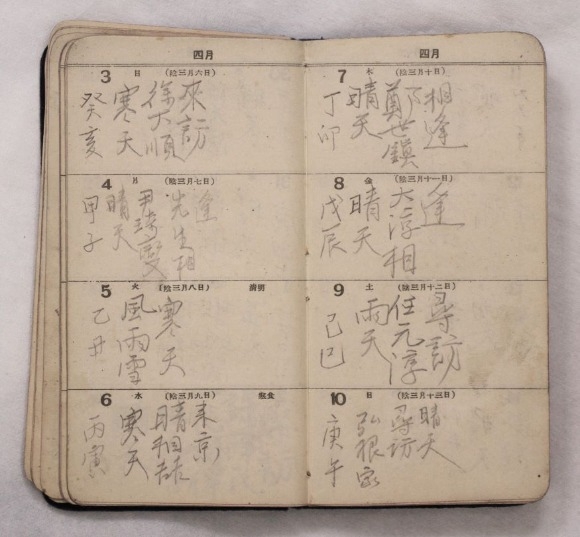 四月
3
日
(陰三月六日)
癸亥
寒天
徐大順
來訪
4
月
(陰三月七日)
甲子
晴天
先生相
逢
5
火
(陰三月八日)
清明
乙丑
風雨雪
寒天
6
水
(陰三月九日)
寒食
丙寅
寒天
來京
四月
7
木
(陰三月十日)
丁卯
晴天
鄭世鎮
相逢
8
金
(陰三月十一日)
戊辰
晴天
大淳相
逢
9
土
(陰三月十二日)
己巳
雨天
任元淳
尋訪
10
日
(陰三月十三日)
庚午
弘根家
尋訪
晴天